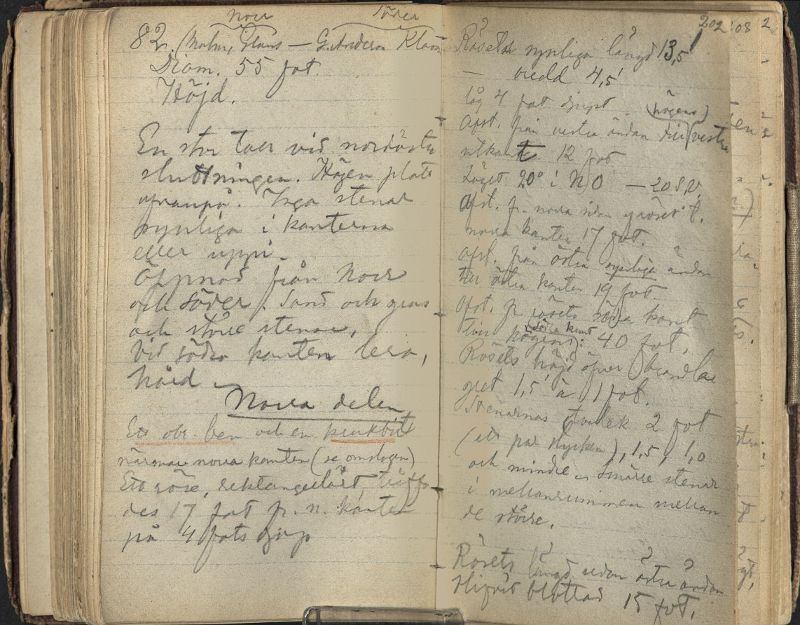 Norr Söder
82. (Malmı, Claus — G. Andersson Klam
Diam. 55 fot.
Höjd.
En stor tall vid nordöstra
sluttningen. Högen platt
ofvanpå. Inga stenar
synliga i kanterna
eller uppå.
Öppnad från Norr
och söder. Sand och grus
och större stenar.
Vid södra kanten lera,
hård.
Norra delen
Ett obr. ben och en krukbit
närmare norra kanten (se omslagen)
Ett röse, rektangelärt träffa-
des 17 fot fr. n. kanten
på 4 fots djup
202 08 2
Rösets synliga längd 13,5
— bredd 4,5
låg 4 fot djupt.
Afst. från vestra ändan till (högens) vestra
utkant 12 fot
Läget 20° i NO — 20 SV
Afst. fr. norra sidan af röset t.
norra kanten 17 fot.
Afst. från östra synliga ändan
till östra kanten 19 fot
Afst. fr. rösets södra kant
till högens (södra kant): 40 fot.
Rösets höjd öfver brandla-
gret 1,5 à 1 fot.
Stenarnas storlek 2 fot
(ett par stycken), 1,5, 1,0
och mindre. Smärre stenar
i mellanrummen mellan
de större.
Rösets längd sedan östra ändan
blifvit blottad 15 fot.